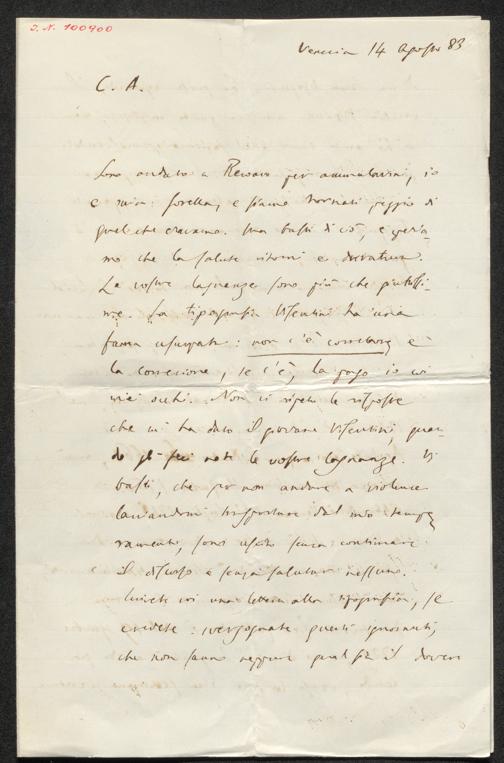 I. N. 100900
Venezia 14 Agosto 83
C. A.
Sono andato a Recoaro per ammalarmi, io
e mia sorella, e siamo tornati peggio di
quel che eravamo. Ma basti di ciò, e speria-
mo che la salute ritorni e duratura.
Le vostre lagnanze sono più che giustissi-
me. La tipografia Visentini ha una
fama usurpata: non c'è correttore, e
la correzione, se c'è, la pago io coi
miei occhi. Non vi ripeto le risposte
che mi ha dato il giovane Visentini, quan-
do gli feci note le vostre lagnanze. Vi
basti, che per non andare a violenze
lasciandomi trasportare dal mio tempe-
ramento, sono uscito senza continuare
il discorso e senza salutar nessuno.
Scrivete voi una lettera alla tipografia, se
credete: svergognate questi ignoranti,
che non sanno neppure qual sia il dovere